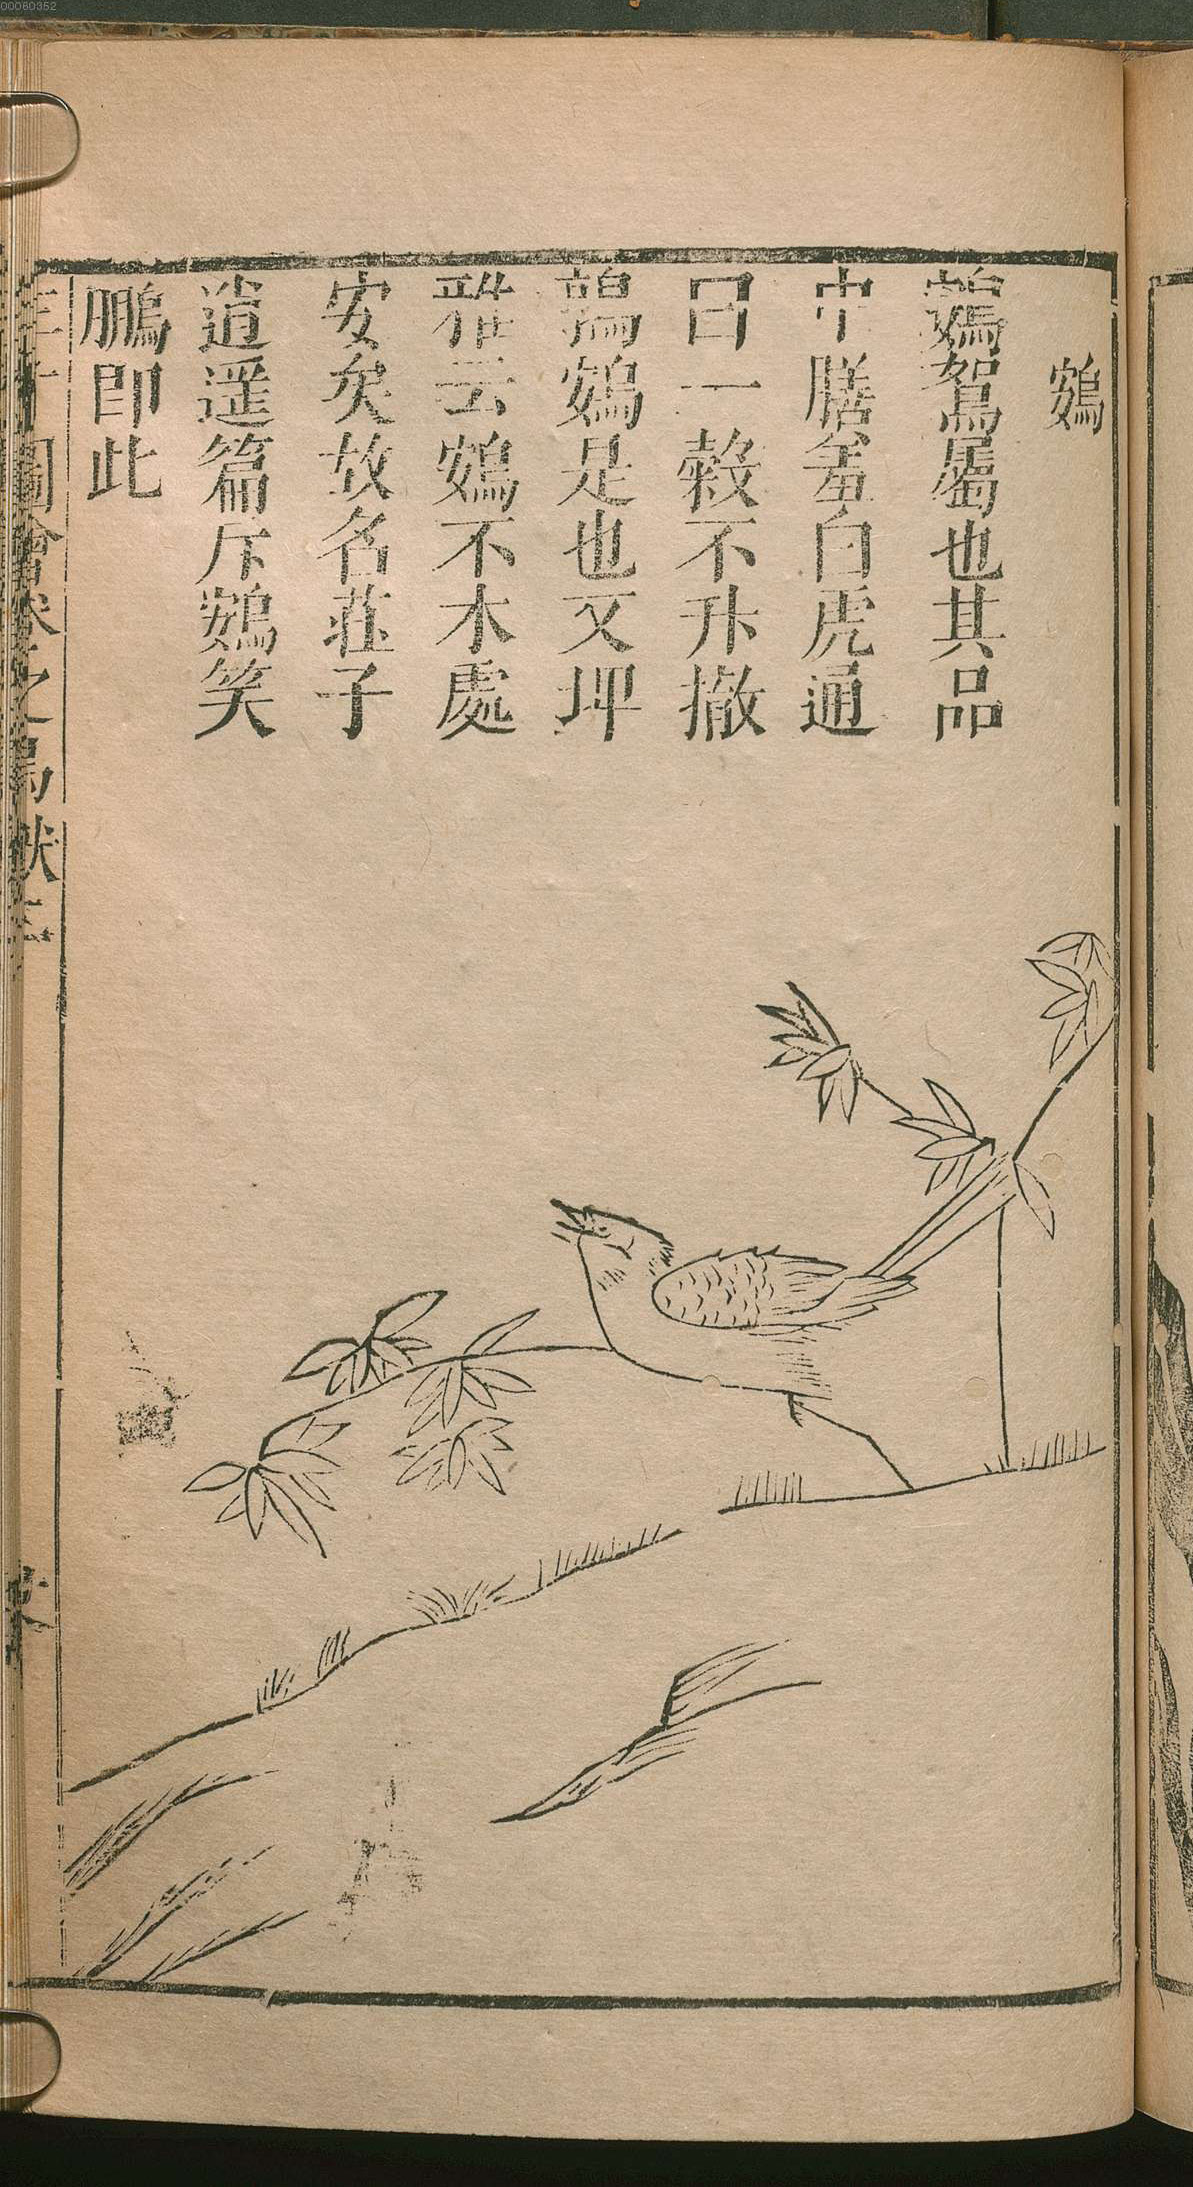 鴳
鴳鴽屬也其品
中膳羞白虎通
曰一榖不升撤
鶉鴳是也又埤
雅云鴳不木處
安矣故名莊子
逍遥篇斥鴳笑
鵬即此
圖會
鳥獸
00060352